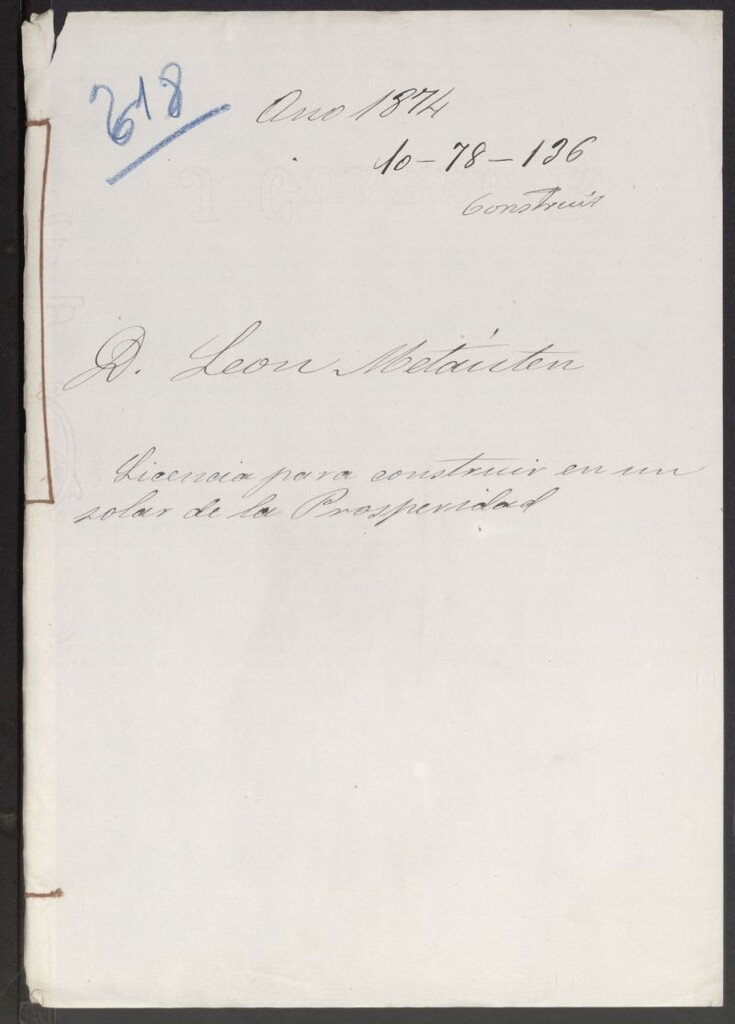 618
Año 1874
10-78-136
Construir
D. Leon Metáuten
Licencia para construir en un
solar de la Prosperidad